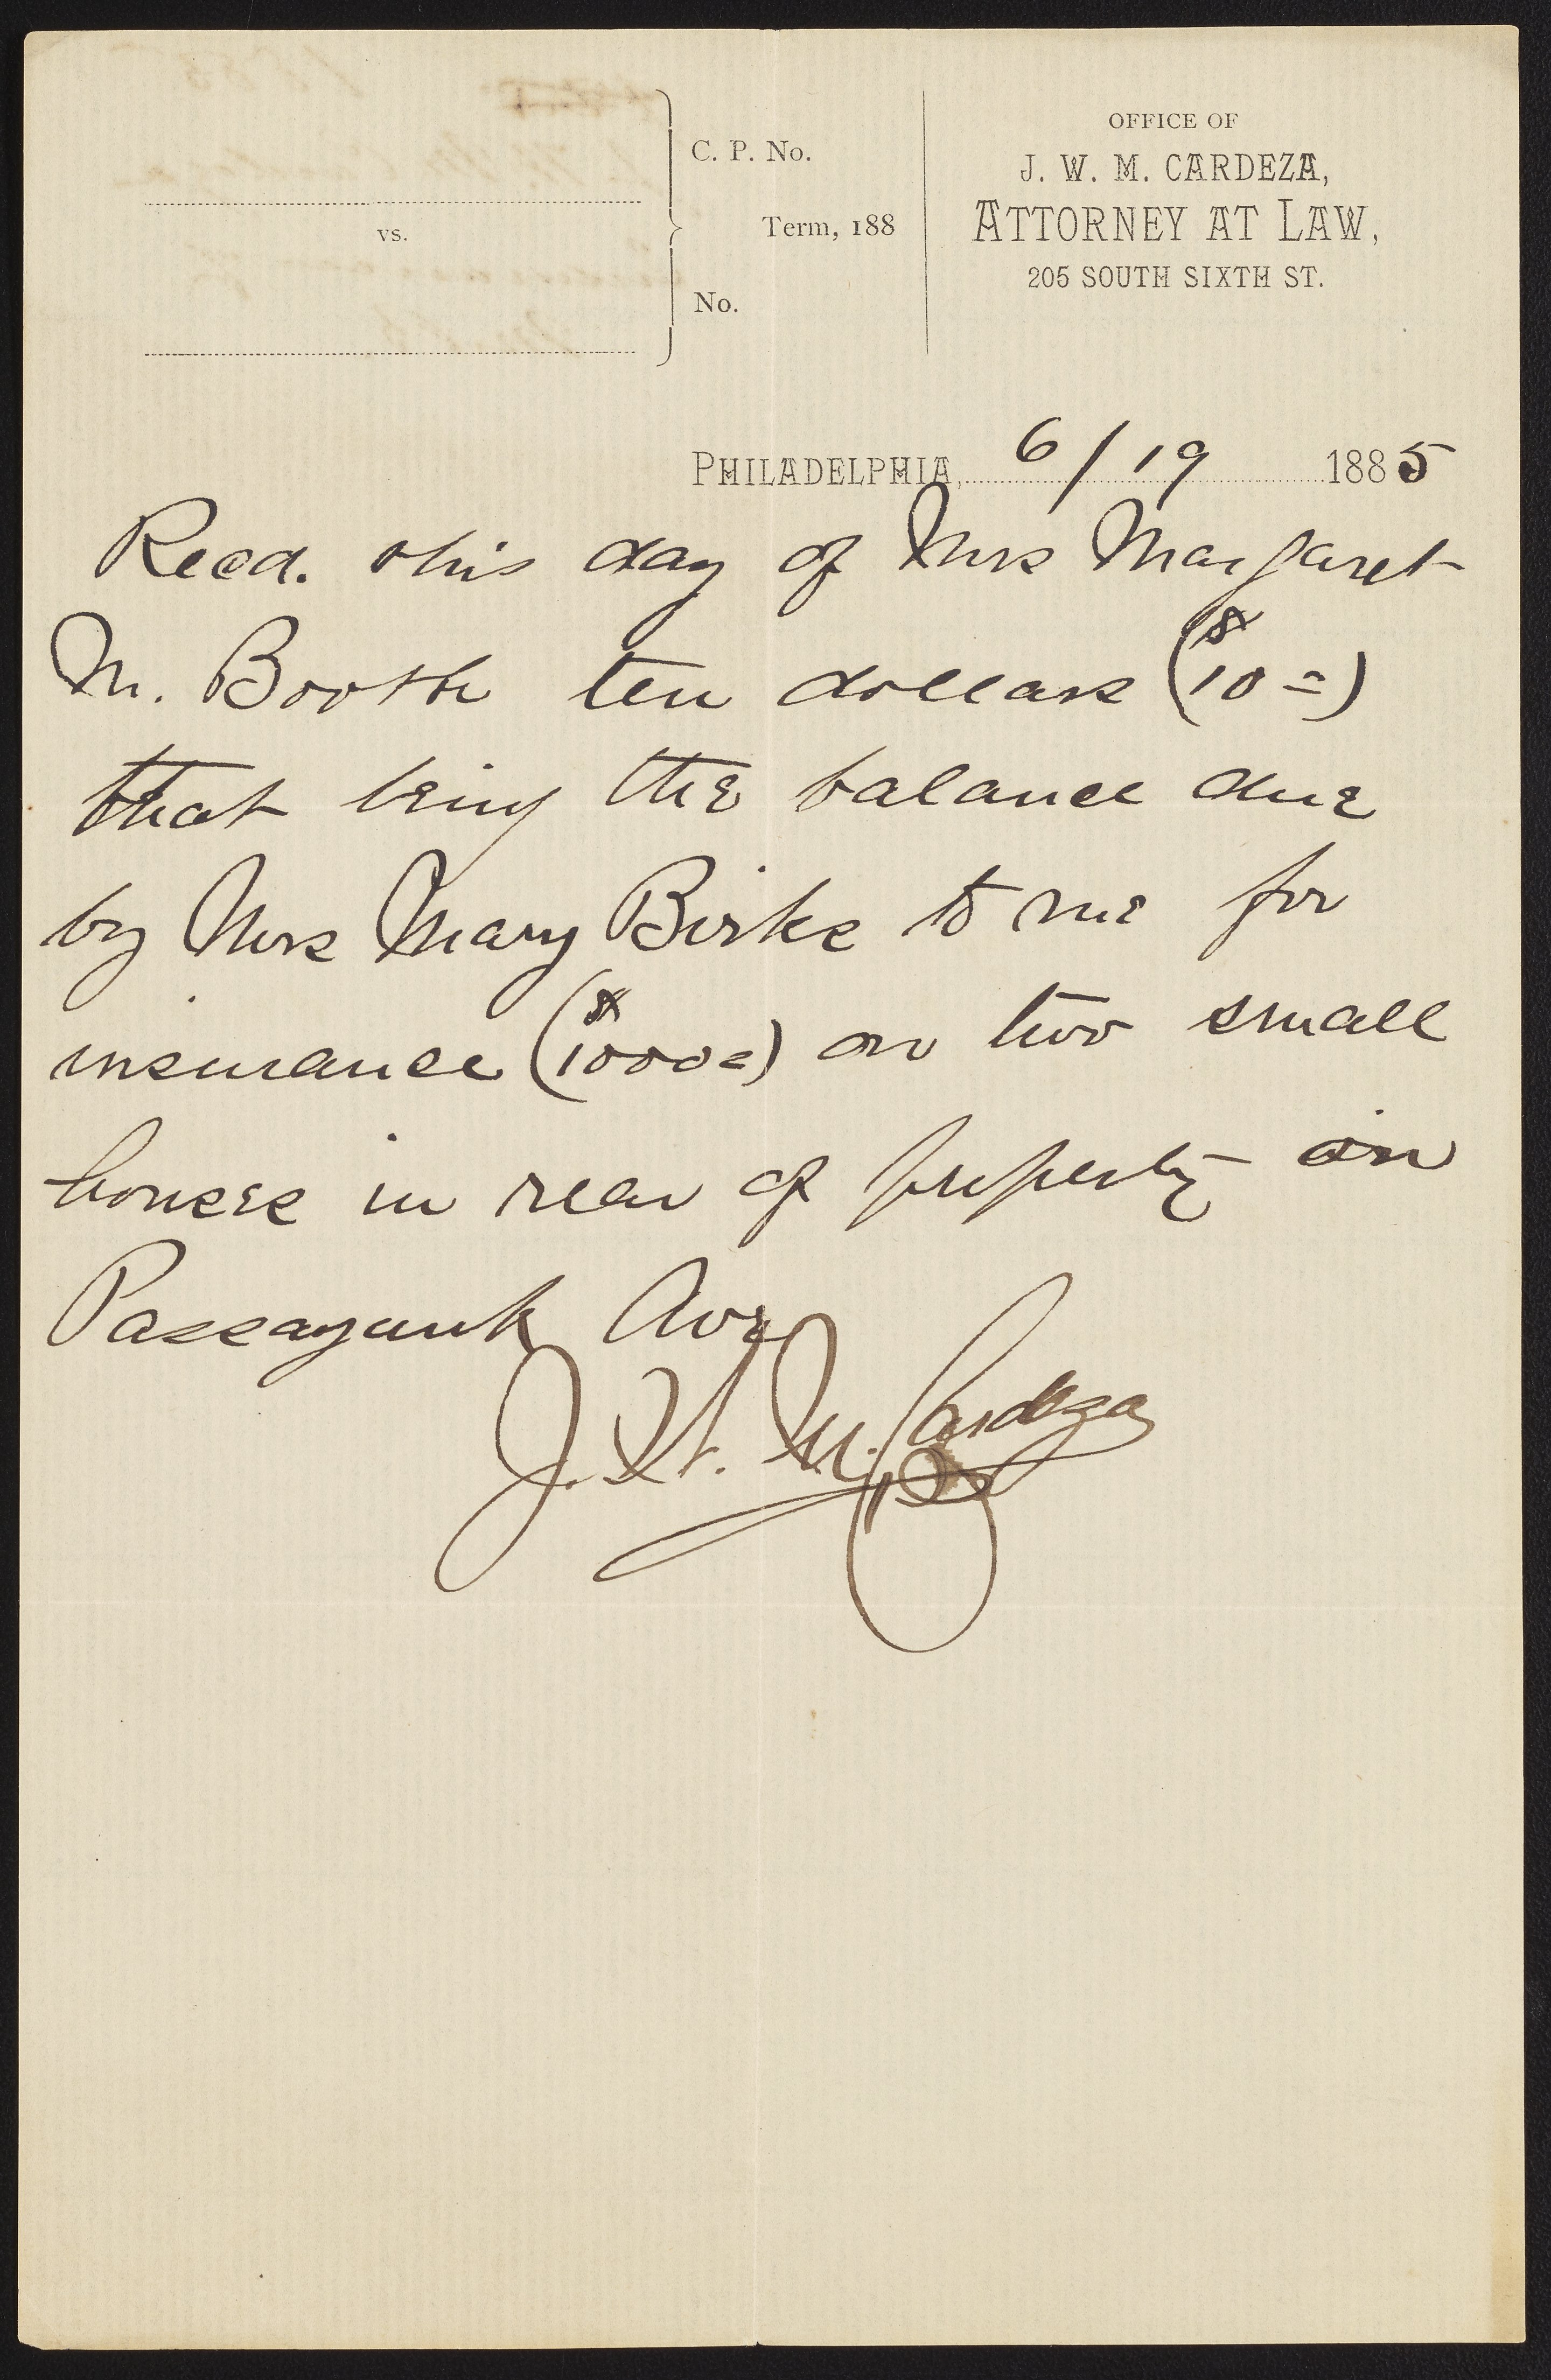 C. P. No.
vs.
Term, 188
No.
OFFICE OF
J. W. M. CARDEZA,
ATTORNEY AT LAW,
205 SOUTH SIXTH ST.
PHILADELPHIA, 6/19 1885
Recd. this day of Mrs Margaret
M. Booth ten dollars ($10=)
that being the balance due
by Mrs Mary Birke to me for
insurance ($1000=) on two small
houses in rear of property on
Passayunk Ave
J. W. M. Cardeza